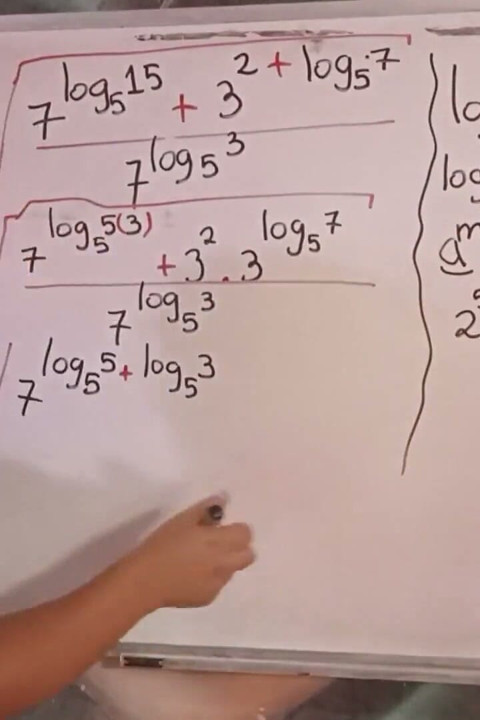 7^log₅15 + 3^2 + log₅7
7^log₅3
7^log₅5(3) + 3^2 . 3^log₅7
7^log₅3
7^log₅5 + log₅3
log
a^m
2